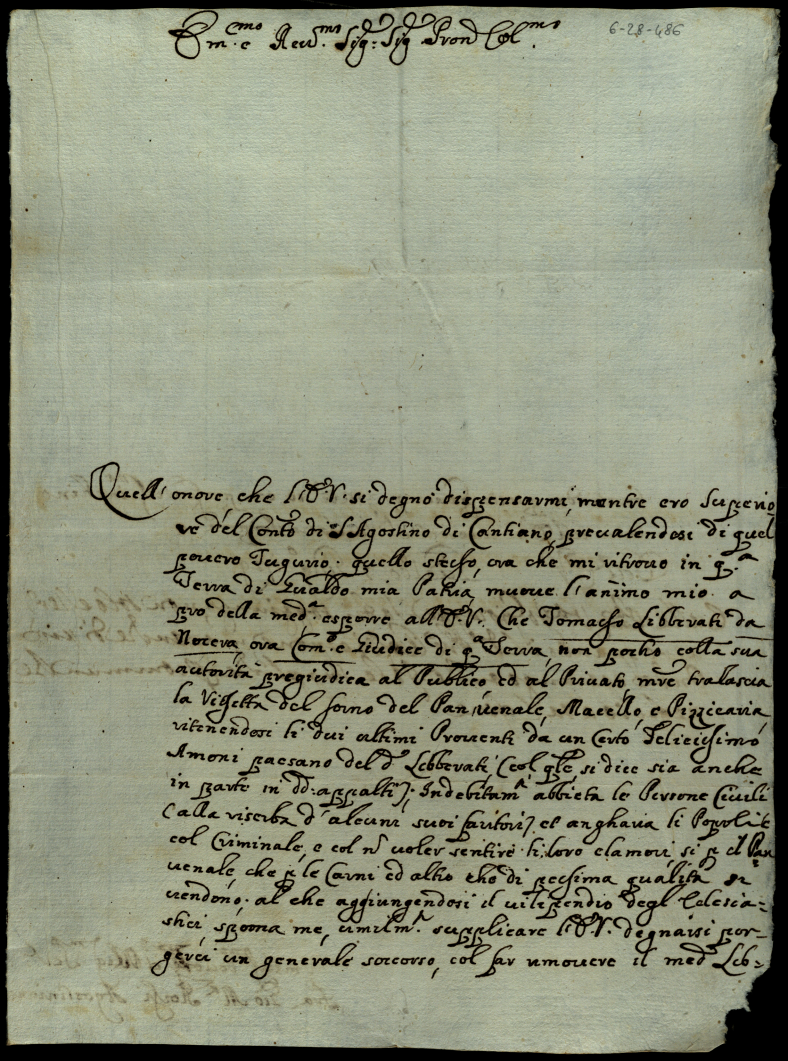 6-28-486
Em.mo e Rev.mo Sig: Sig Pron Col.mo
Quell'onore che l'E.V. si degnò dispensarmi, mentre ero Superio
re del Conto di S Agostino di Cantiano, prevalendosi di quel
povero Tugurio, quello stesso, ora che mi ritrovo in q.a
Terra di Gualdo mia Patria, muove l'animo mio a
pro della med.a esporre all'E.V. Che Tomasso Libberati da
Nocera, ora Com.o e Giudice di q.a Terra, non pocho colla sua
autorità pregiudica al Publico ed al Privato, mre tralascia
la Visetta del forno del Pan venale, Macello, e Pizzicaria,
ritenendosi li dui ultimi Proventi da un Certo Felicissimo
Amoni paesano del d. Libberati (col qle si dice sia anche
in parte in dd. appalti). Indebitam.e abbieta le Persone Civili
(alla riserba d'alcuni suoi fautori) et angharia li Popoli e
col Criminale, e col n voler sentire li loro clamori si p el Pan
venale, che p le Carni ed altro che di pessima qualità si
vendono. al che aggiungendosi il vilipendio degl'Eclesia=
stici sprona me, umilm.e supplicare l'E.V. degnarsi por=
gerci un generale soccorso, col far rimovere il med. Lib=